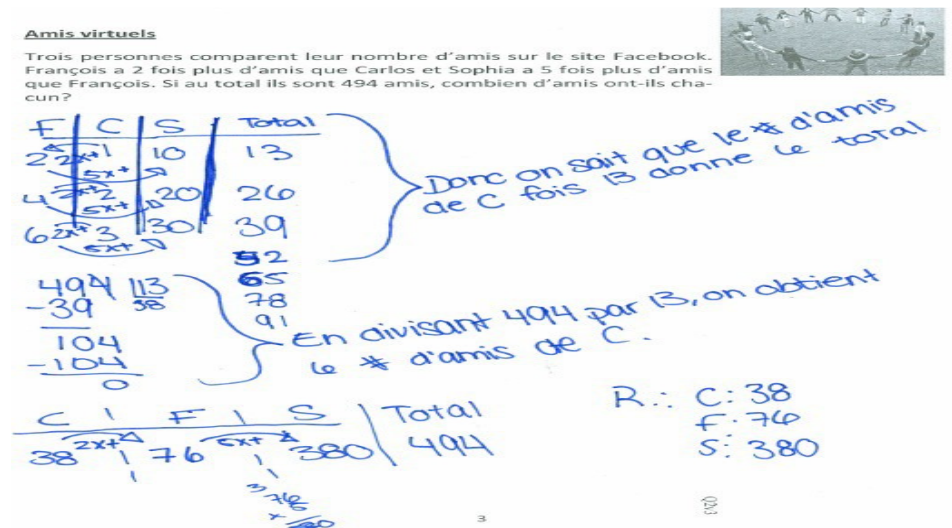 Amis virtuels
Trois personnes comparent leur nombre d'amis sur le site Facebook.
François a 2 fois plus d'amis que Carlos et Sophia a 5 fois plus d'amis
que François. Si au total ils sont 494 amis, combien d'amis ont-ils cha-
cun?
F C S Total
2 2x+ 1 10 13
5x+
4 2x+ 2 20 26
5x+
6 2x+ 3 30 39
5x+
52
65
78
91
Donc on sait que le # d'amis
de C fois 13 donne le total
494 13
-39 38
104
-104
0
En divisant 494 par 13, on obtient
le # d'amis de C.
C F S Total
38 2x+ 76 5x+ 380 494
3
76
x
R.: C: 38
F: 76
S: 380
3